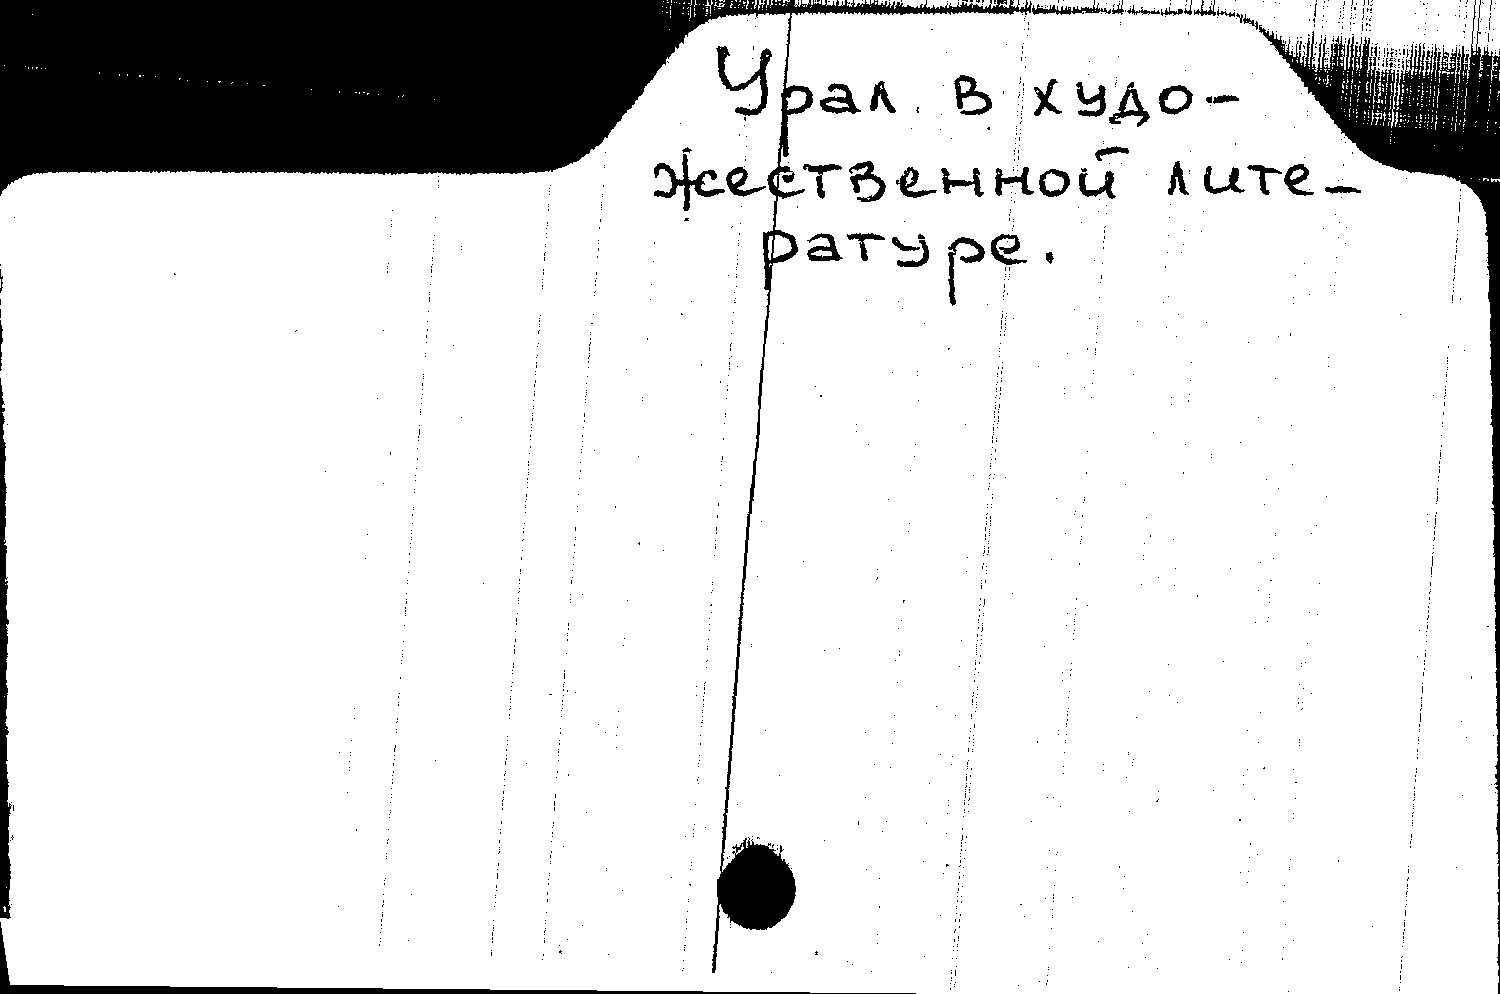 Урал в худо-
жественной лите-
ратуре.